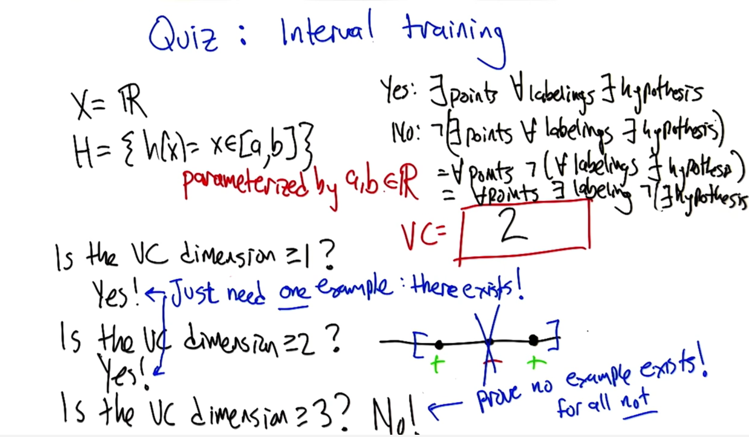 Quiz: Interval training
X = ℝ
H = {h(x) = x∈[a,b]}
parameterized by a,b∈ℝ
Yes: ∃points ∀labelings ∃hypothesis
No: ¬(∃points ∀ labelings ∃hypothesis)
= ∀points ¬(∀ labelings ∃ hypothesis)
= ∀points ∃ labeling ¬(∃hypothesis
VC= 2
Is the VC dimension ≥1?
Yes! ← Just need one example: there exists!
Is the VC dimension ≥2?
Yes!
[ ]
+ - +
Is the VC dimension ≥3? No! ← prove no example exists!
for all not